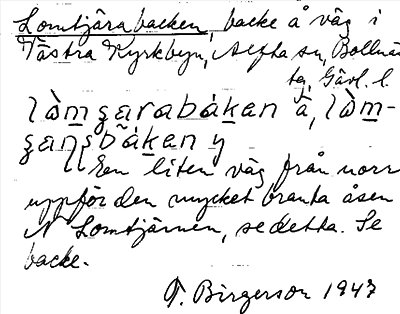 Lomtjärabacken, backe å väg i
Västra Kyrkbyn, Alfta sn, Bollnäs
tg, Gävl. l.
lòm̲ʂarabák̲en å, lòm̲-
ʂaɳsbák̲en y
Een liten väg från norr
uppför den mycket branta åsen
N Lomtjärnen, se detta. Se
backe.
F. Birgerson 1947